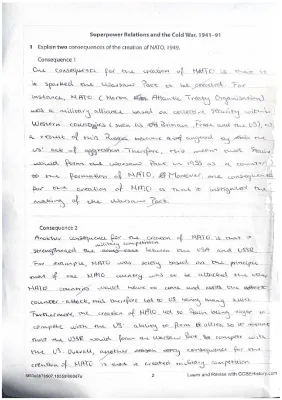 Superpower Relations and the Cold War, 1941-91
1 Explain two consequences of the creation of NATO, 1949.
Consequence 1
One consequence for the creation of NATO is that it
is sparked the Warsaw Pact to be created. For
instance, NATO (North Atlantic Treaty Organisation)
was a military alliance based on collective security within
Western countries (such as Britain, France and the US), as
a result of this Russia became angered by the
US' act of aggression. Therefore, this meant that Russia
would form the Warsaw Pact in 1955 as a counter
to the formation of NATO. Moreover, one consequence
for the creation of NATO is that it instigated the
making of the Warsaw Pact.
Consequence 2
Another consequence for the creation of NATO is that it
military competition
strengthened the between the USA and USSR.
For example, NATO was solely based on the principle
that if one NATO country was to be attacked the other
NATO countries would have to come and
counter-attack, this therefore led to US having many allies.
Furthermore, the creation of NATO led to Stalin being eager to
compete with the US' ability to form allies, so it meant
that the USSR would form the Warsaw Pact to compete with
the US. Overall, another consequence for the
creation of NATO is that it created military competition
2
Learn and Revise with GCSEHistory.com